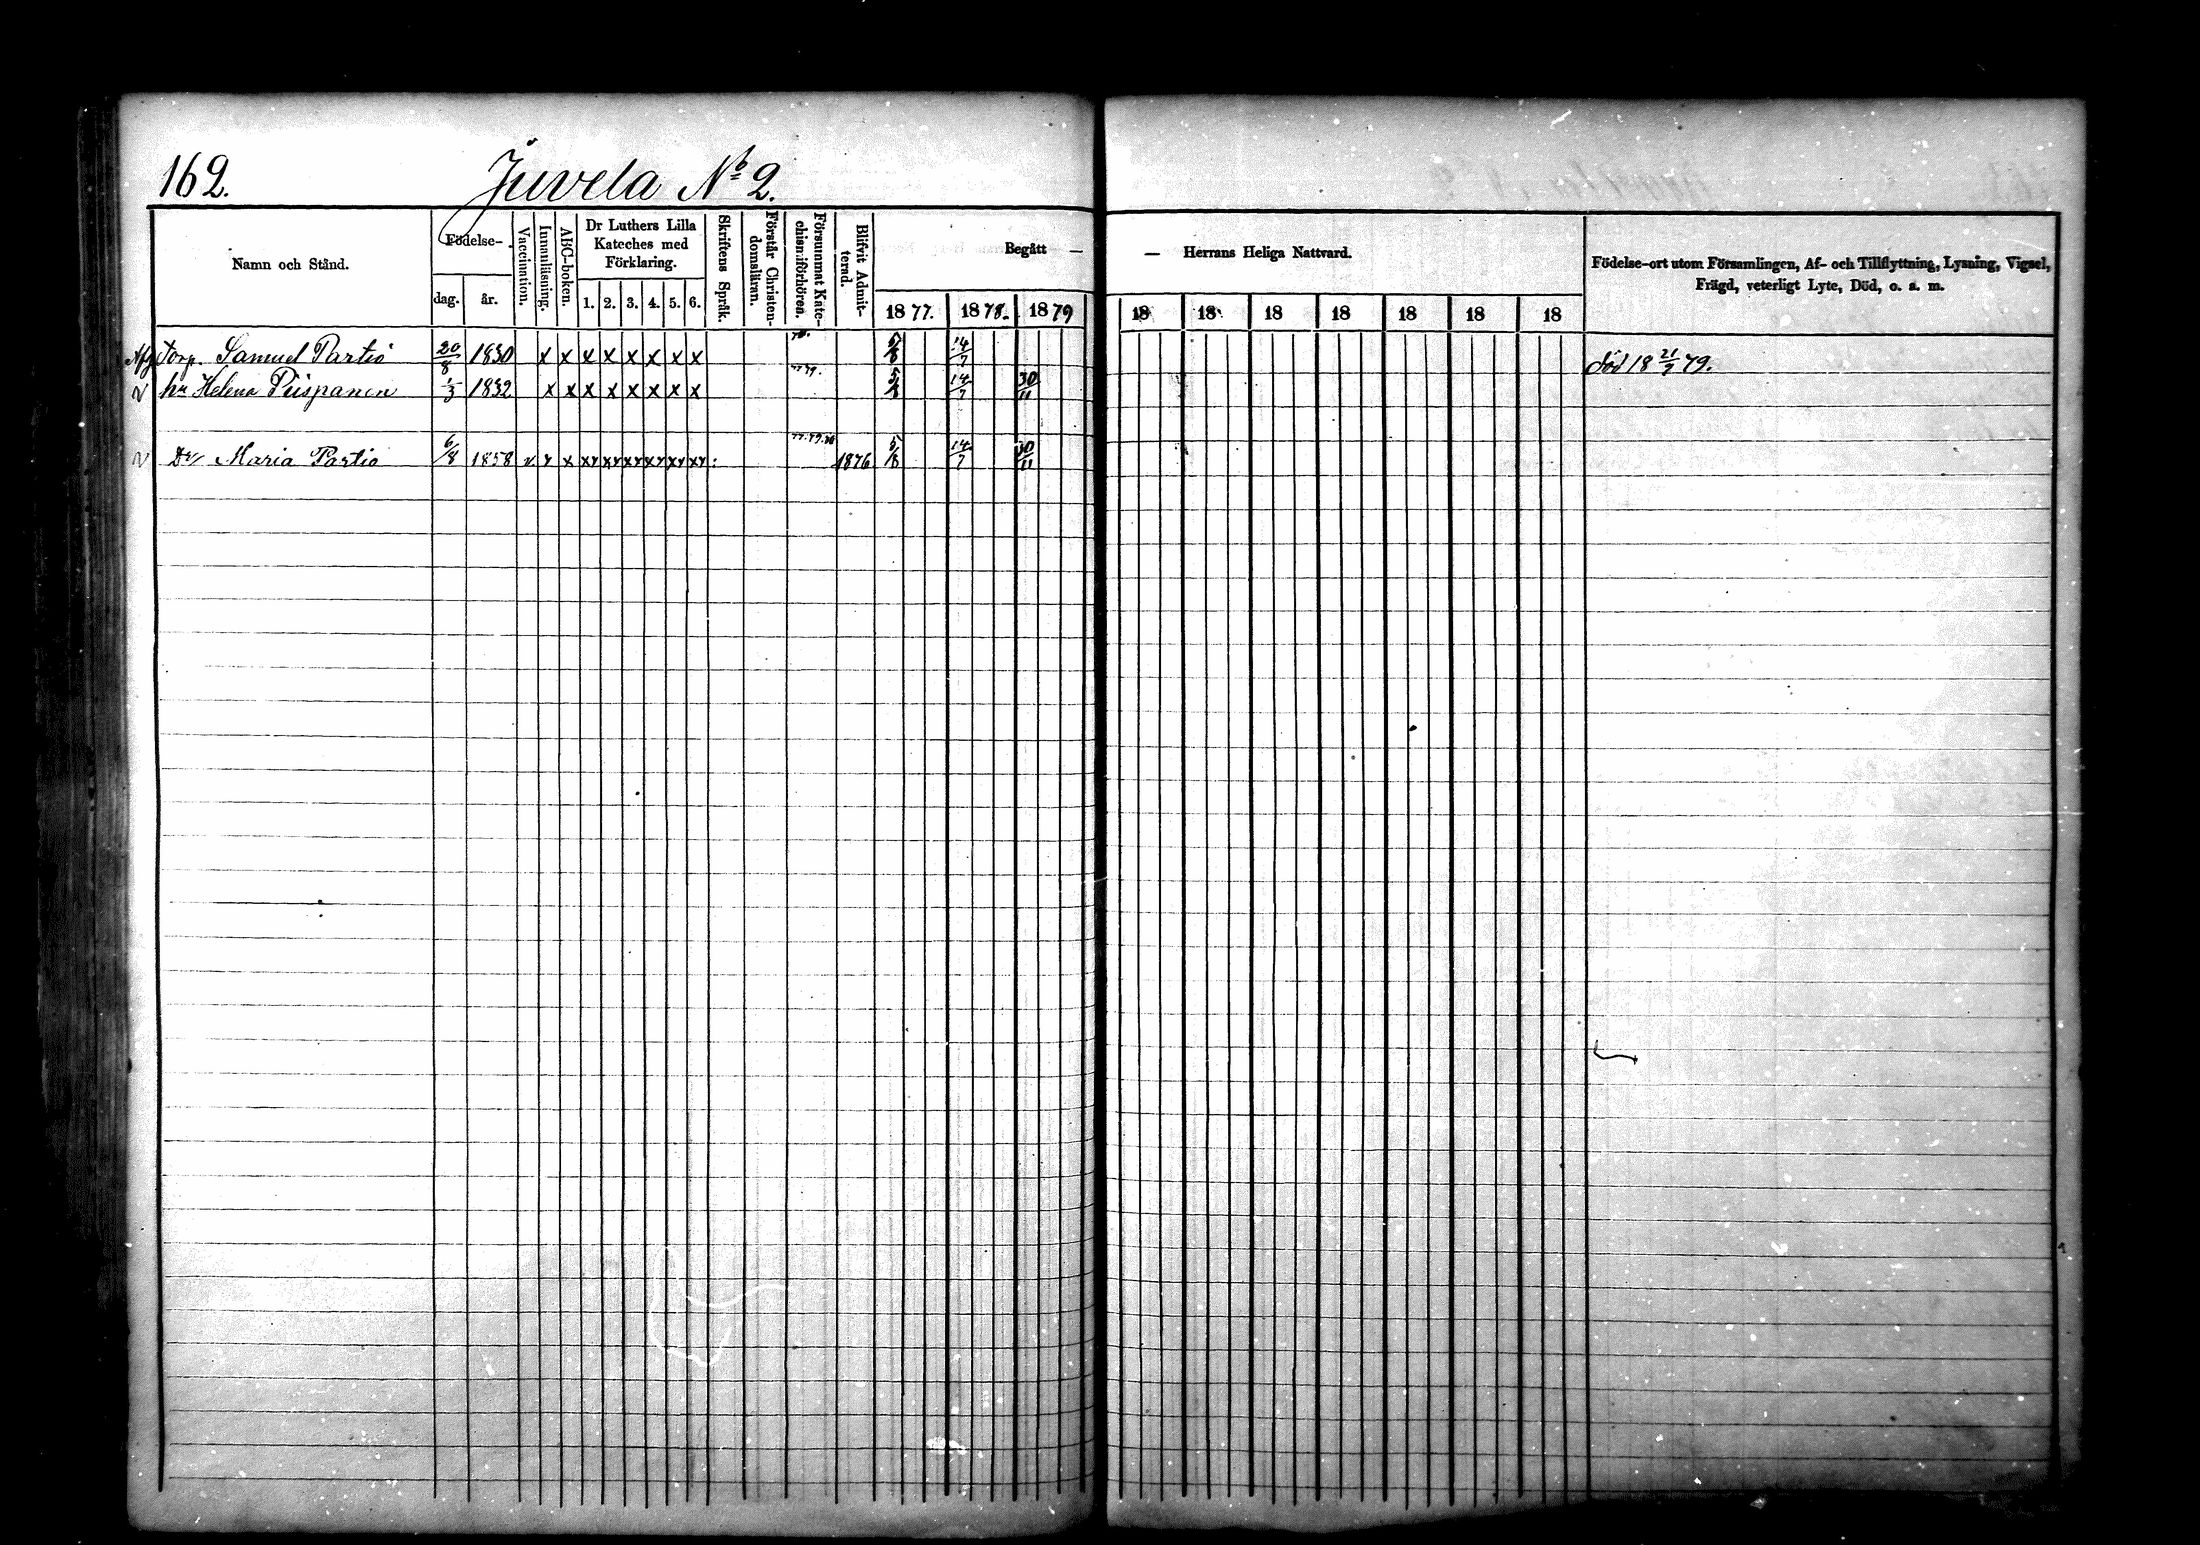 162. Juvela No 2.
Namn och Stånd.
Födelse-
dag. år.
Vaccination.
Innanläsning.
ABC-boken.
Dr Luthers Lilla
Kateches med
Förklaring.
1. 2. 3. 4. 5. 6.
Skriftens Språk.
Förstår Christen-
domsläran.
Försummat Kate-
chismiförhören.
Blifvit Admit-
terad.
Begått —
1877. 1878. 1879
— Herrans Heliga Nattvard.
18 18 18 18 18 18 18
Födelse-ort utom Församlingen, Af- och Tillflyttning, Lysning, Vigsel,
Frägd, veterligt Lyte, Död, o. s. m.
Torp. Samuel Partio 20/8 1830 x x x x x x x x 5/8 14/7 död 18 21/7 79.
v hu Helena Piispanen 1/3 1832 x x x x x x x x 77.79. 5/8 14/7 30/11
v Dr Maria Partio 6/8 1858 v. x x xx xx xx xx xx xx : 1876 5/8 14/7 30/11